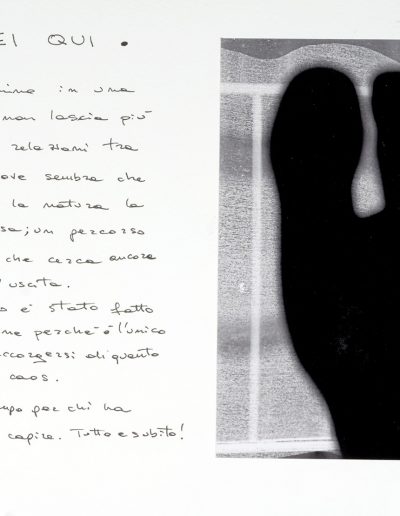 EI QUI .
in una
non lascia più
relazioni tra
ove sembra che
la natura la
sa; un percorso
che cerca ancora
uscita.
o è stato fatto
ne perché è l'unico
ccorgersi di quanto
caos.
mpo per chi ha
capire. Tutto e subito!